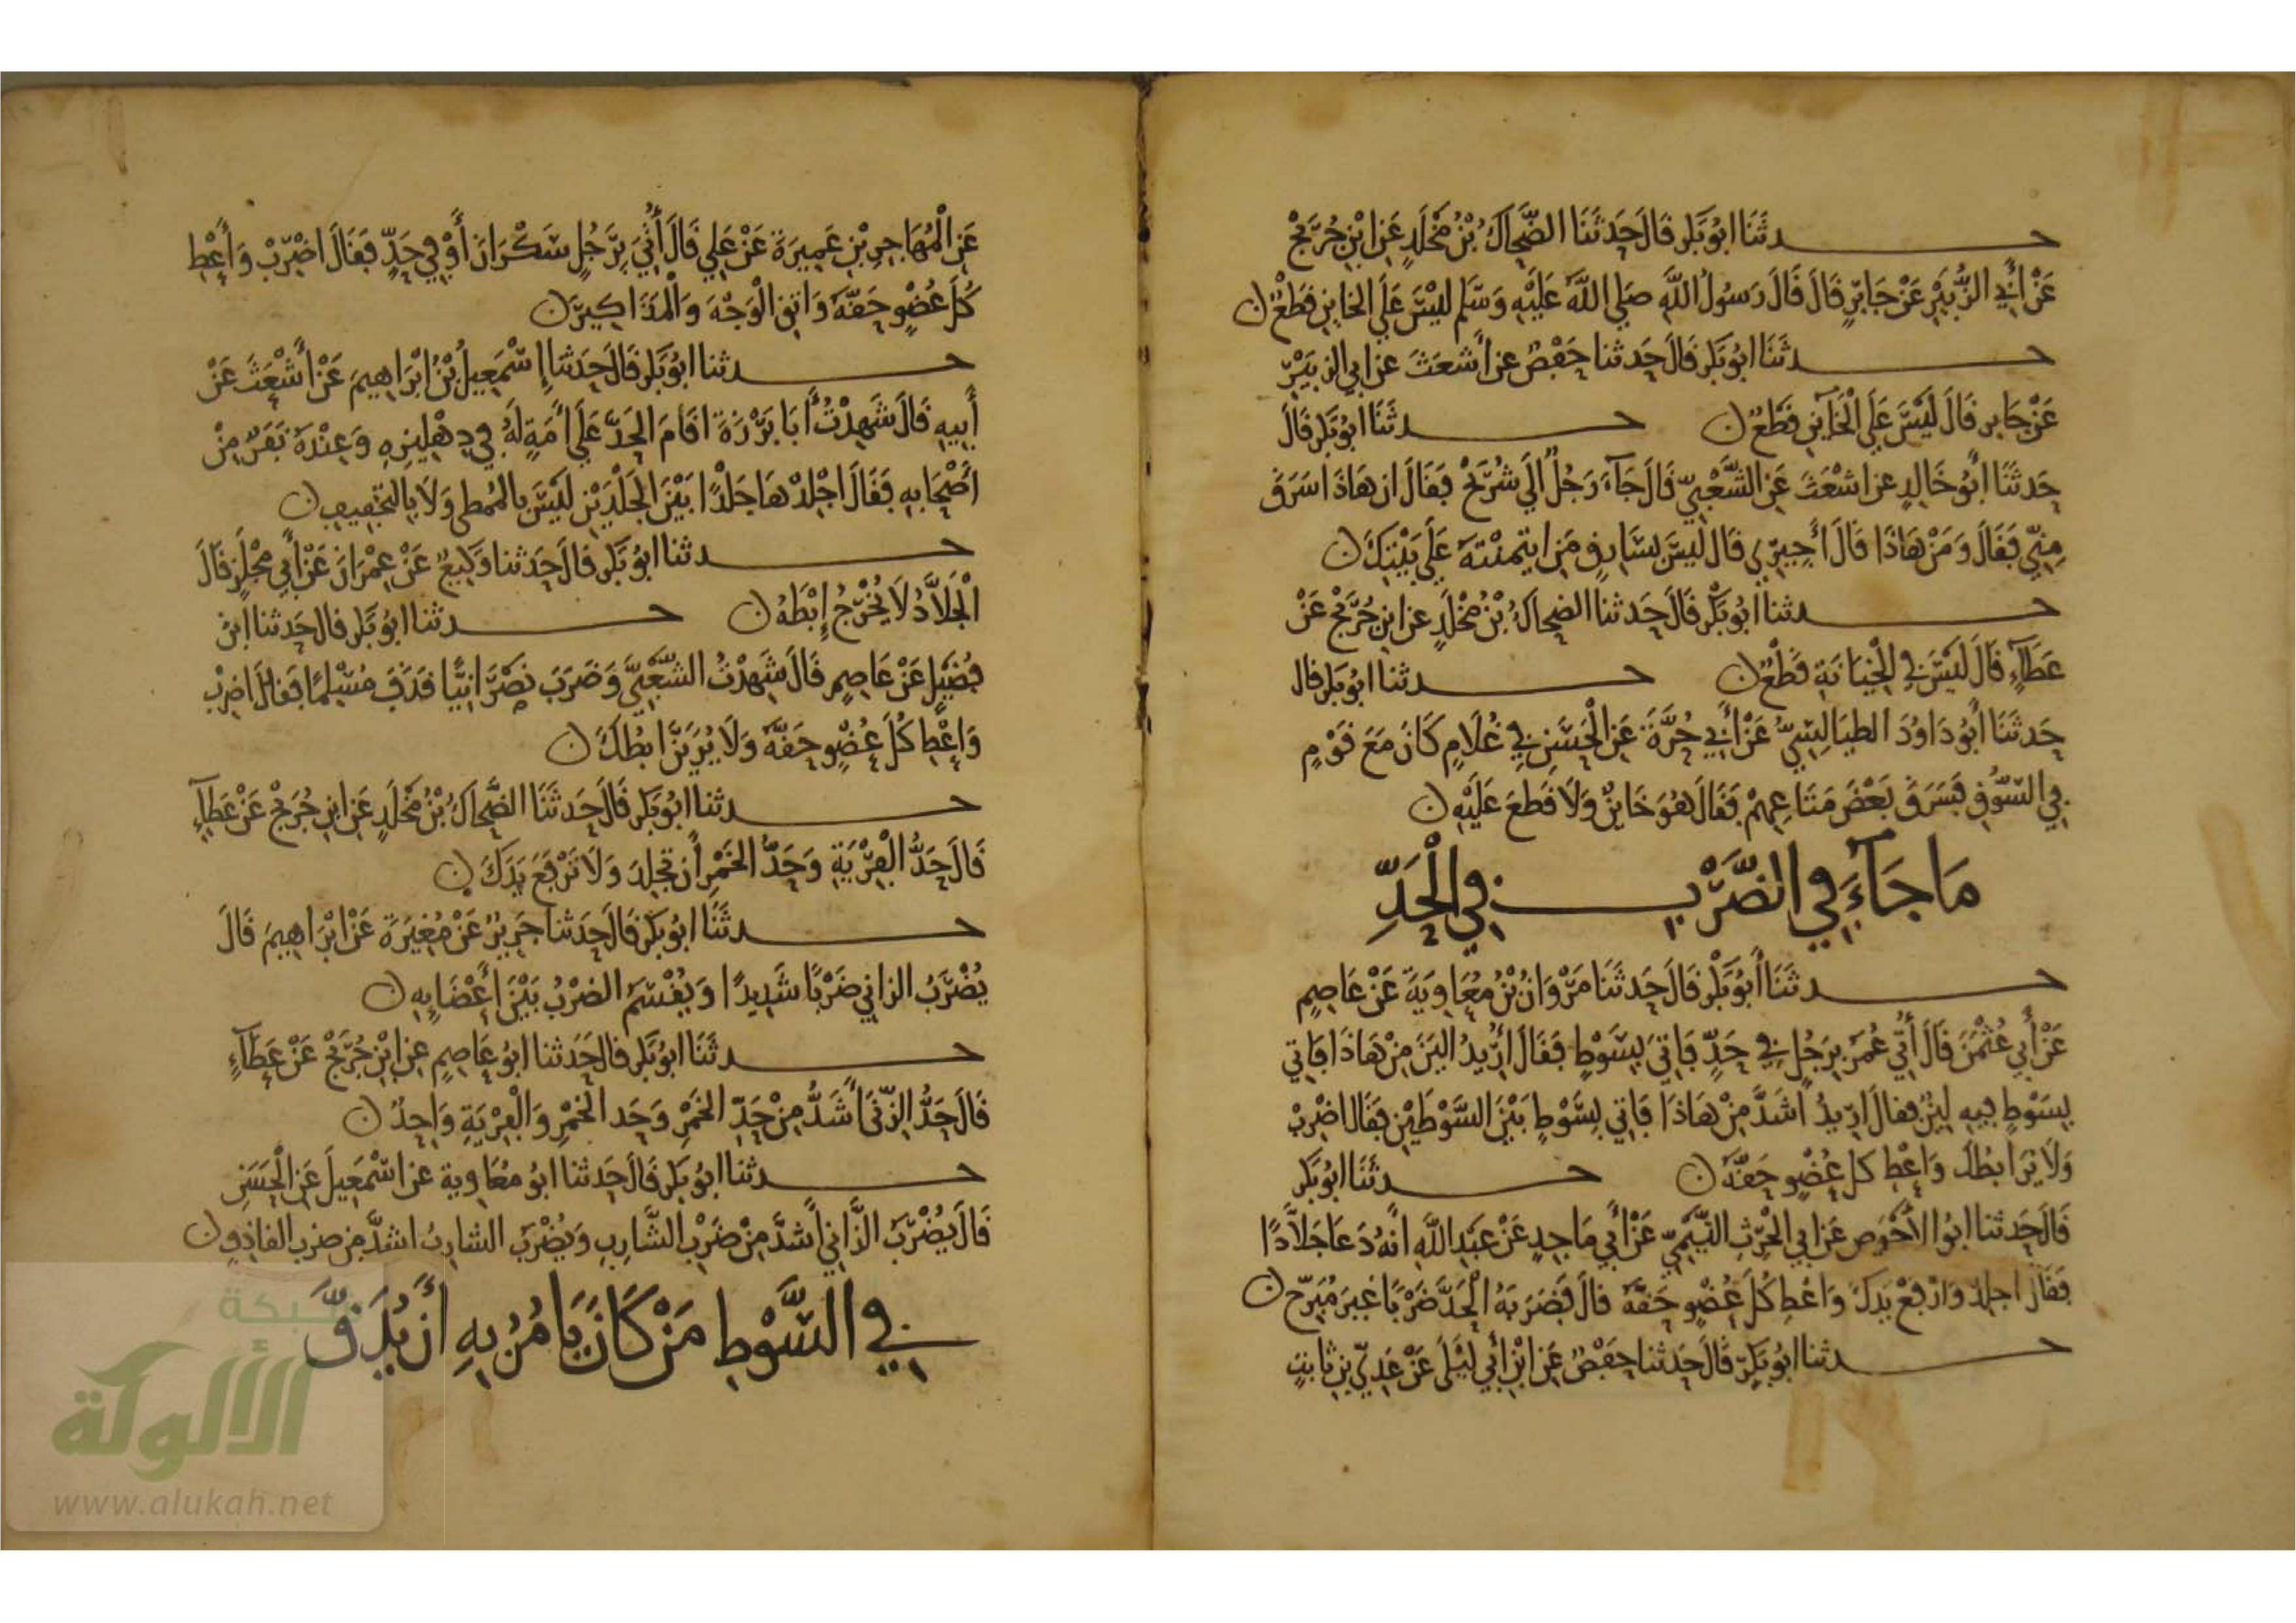 حدثنا ابُو بَكر قَالَ حَدثَنَا الضَّحاكُ بْنُ مَخْلَدٍ عَنِ ابْنِ جُرَيْجٍ
عَنْ أَبِي الزُّبَيْرِ عَنْ جَابِرٍ قَالَ قَالَ رَسُولُ اللَّهِ صَلى اللَّهُ عَلَيْهِ وَسَلم لَيْسَ عَلَى الخاين قَطْعٌ ن
حدثَنَا ابُو بَكر قَالَ حَدثنا حَفْصٌ عن أَشعَثَ عن ابي الزبَيْرِ
عَنْ جابر قَالَ لَيْسَ عَلَى الْخَآين قَطعٌ ن حدثَنَا ابُو بَكر قَالَ
حَدثَنَا أَبُو خَالِدٍ عن اشْعَثَ عَنِ الشَّعْبِيِّ قَالَ جَآءَ رَجُلٌ الَى شُرَيْحٍ فَقَالَ ان هَاذَا سَرَقَ
مِنِّي فَقَالَ وَمَنْ هَاذَا قَالَ أَجِيرِي قَالَ لَيْسَ بسَارِقٍ مَنِ ايتمنْتَهُ عَلَى بَيْتِكَ ن
حدثنا أَبُو بَكْر قَالَ حَدثنا الضحاكُ بْنُ مَخْلَدٍ عن ابن جُرَيْجٍ عَنْ
عَطَآءٍ قَالَ لَيْسَ فِي الْخِيَانَةِ قَطْعٌ ن حدثنا ابُو بَكر قال
حَدثَنَا أَبُو دَاوُدَ الطيَالِسِيُّ عَنْ أَبِي حُرَّةَ عَنِ الْحَسَنِ فِي غُلَامٍ كَانَ مَعَ قَوْمٍ
في السُّوْقِ فَسَرَقَ بَعْضَ مَتَاعِهِمْ فَقَالَ هُوَ خَاينٌ وَلَا قَطعَ عَلَيْهِ ن
مَا جَآءَ فِي الضَّرْبِ فِي الْحَدِّ
حدثَنَا أَبُو بَكْر قَالَ حَدثَنَا مَرْوَانُ بْنُ مُعَاوِيَةَ عَنْ عَاصِمٍ
عَنْ أَبِي عُثْمٰنَ قَالَ أُتِيَ عُمَرُ بِرَجُلٍ فِي حَدٍّ فَاتِيَ بِسَوْطٍ فَقَالَ ارِيدُ اليَنَ مِنْ هَاذَا فَاتِي
بِسَوْطٍ فيهِ لِينٌ فقالَ ارِيدُ اشَدَّ مِنْ هَاذَا فَاتِي بِسَوْطٍ بَيْنَ السَّوْطَيْنِ فقَالَ اضْرِبْ
وَلَا يُرَا ابطُكَ وَاعْطِ كل عُضْوٍ حَقَّهُ ن حدثَنَا ابُو بَكر
قَالَ حَدثنا ابُو الأَحْوَصِ عَنْ ابي الْحٰرِثِ التَّيْمِيِّ عَنْ أَبِي مَاجِدٍ عَنْ عَبْدِ اللَّهِ انَّهُ دَعَا جَلَّادًا
فَقَالَ اجلِدْ وَارْفَعْ يَدَكَ وَاعْطِ كُلَّ عُضْوٍ حَقَّهُ قالَ فَضَرَبَهُ الْحَدَّ ضَرْبًا غيرَ مُبَرِّحٍ ن
حدثنا ابُو بَكْرٍ قَالَ حَدثنا حَفْصٌ عَنِ ابْنِ أَبِي لَيْلَى عَنْ عَدِيِّ بن ثَابتٍ
عَنِ الْمُهَاجِرِ بْنِ عَمِيرَةَ عَنْ عَلِي قَالَ أُتِيَ بِرَجُلٍ سَكْرَانَ أَوْ فِي حَدٍّ فَقَالَ اضْرِبْ وَأَعْطِ
كُلَّ عُضْوٍ حَقَّهُ وَاتقِ الْوَجْهَ وَالْمَذَاكِيرَ ن
حدثنا ابُو بَكر قَالَ حَدثنا إِسْمٰعِيلُ بْنُ ابْرَاهِيمَ عَنْ أَشْعَثَ عَنْ
أَبِيهِ قَالَ شَهِدْتُ أَبَا بَرْزَةَ اقَامَ الحَدَّ عَلَى أَمَةٍ لَهُ فِي دِهْلِيزِهِ وَعِنْدَهُ نَفَرٌ مِنْ
أَصْحَابِهِ فَقَالَ اجْلِدْهَا جَلْدًا بَيْنَ الْجَلْدَيْنِ لَيْسَ بالتمطى وَلَا بِالتخْفِيفِ ن
حدثنا ابُو بَكر قالَ حَدثنا وَكِيعٌ عَنْ عِمْرَانَ عَنْ أَبِي مِجْلَزٍ قَالَ
الْجَلاَّدُ لَا يُخْرِجُ إِبْطَهُ ن حدثنا ابُو بَكر قال حَدثنا ابْنُ
فُضَيْلٍ عَنْ عَاصِمٍ قَالَ شَهِدْتُ الشَّعْبِيَّ وَضَرَبَ نَصْرَانِيًّا قَذَفَ مُسْلِمًا فَقَالَ اضرِبْ
وَاعْطِ كُلَّ عُضْوٍ حَقَّهُ وَلَا يُرَيَنَّ ابطُكَ ن
حدثنا ابُو بَكر قَالَ حَدثَنَا الضَّحاكُ بْنُ مَخْلَدٍ عَنِ ابنِ جُرَيْجٍ عَنْ عَطَآءٍ
قَالَ حَدُّ الْفِرْيَةِ وَحَدُّ الخَمْرِ أَنْ تجلِدَ وَلَا تَرْفَعَ يَدَكَ ن
حدثَنَا ابُو بَكر قَالَ حَدثنا جَرِيرٌ عَنْ مُغِيرَةَ عَنْ ابْرَاهِيمَ قَالَ
يُضْرَبُ الزاني ضَرْبًا شَدِيدًا وَيُقْسَمُ الضَرْبُ بَيْنَ أَعْضَايِهِ ن
حدثَنَا ابُو بَكر قال حَدثنا ابُو عَاصِمٍ عنِ ابْنِ جُرَيْجٍ عَنْ عَطَآءٍ
قَالَ حَدُّ الزِّنَى أَشَدُّ مِنْ حَدِّ الخَمْرِ وَحَد الخَمْرِ وَالْفِرْيَةِ وَاحِدٌ ن
حدثنا ابُو بَكر قَالَ حَدثنا ابُو مُعَاوِية عن اسْمٰعِيلَ عَنِ الْحَسَنِ
قَالَ يُضْرَبُ الزَّانِي أَشدَّ مِنْ ضَرْبِ الشَّارِبِ وَيُضْرَبُ الشارِبُ اشدَّ من ضرب القاذِفِ ن
فِي السَّوْطِ مَنْ كَانَ يَامُرُ بِهِ أَنْ يُدَقَّ
شبكة
الألوكة
www.alukah.net